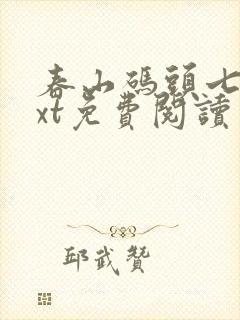 春山碼頭七
xt免費閱讀
邱武贊